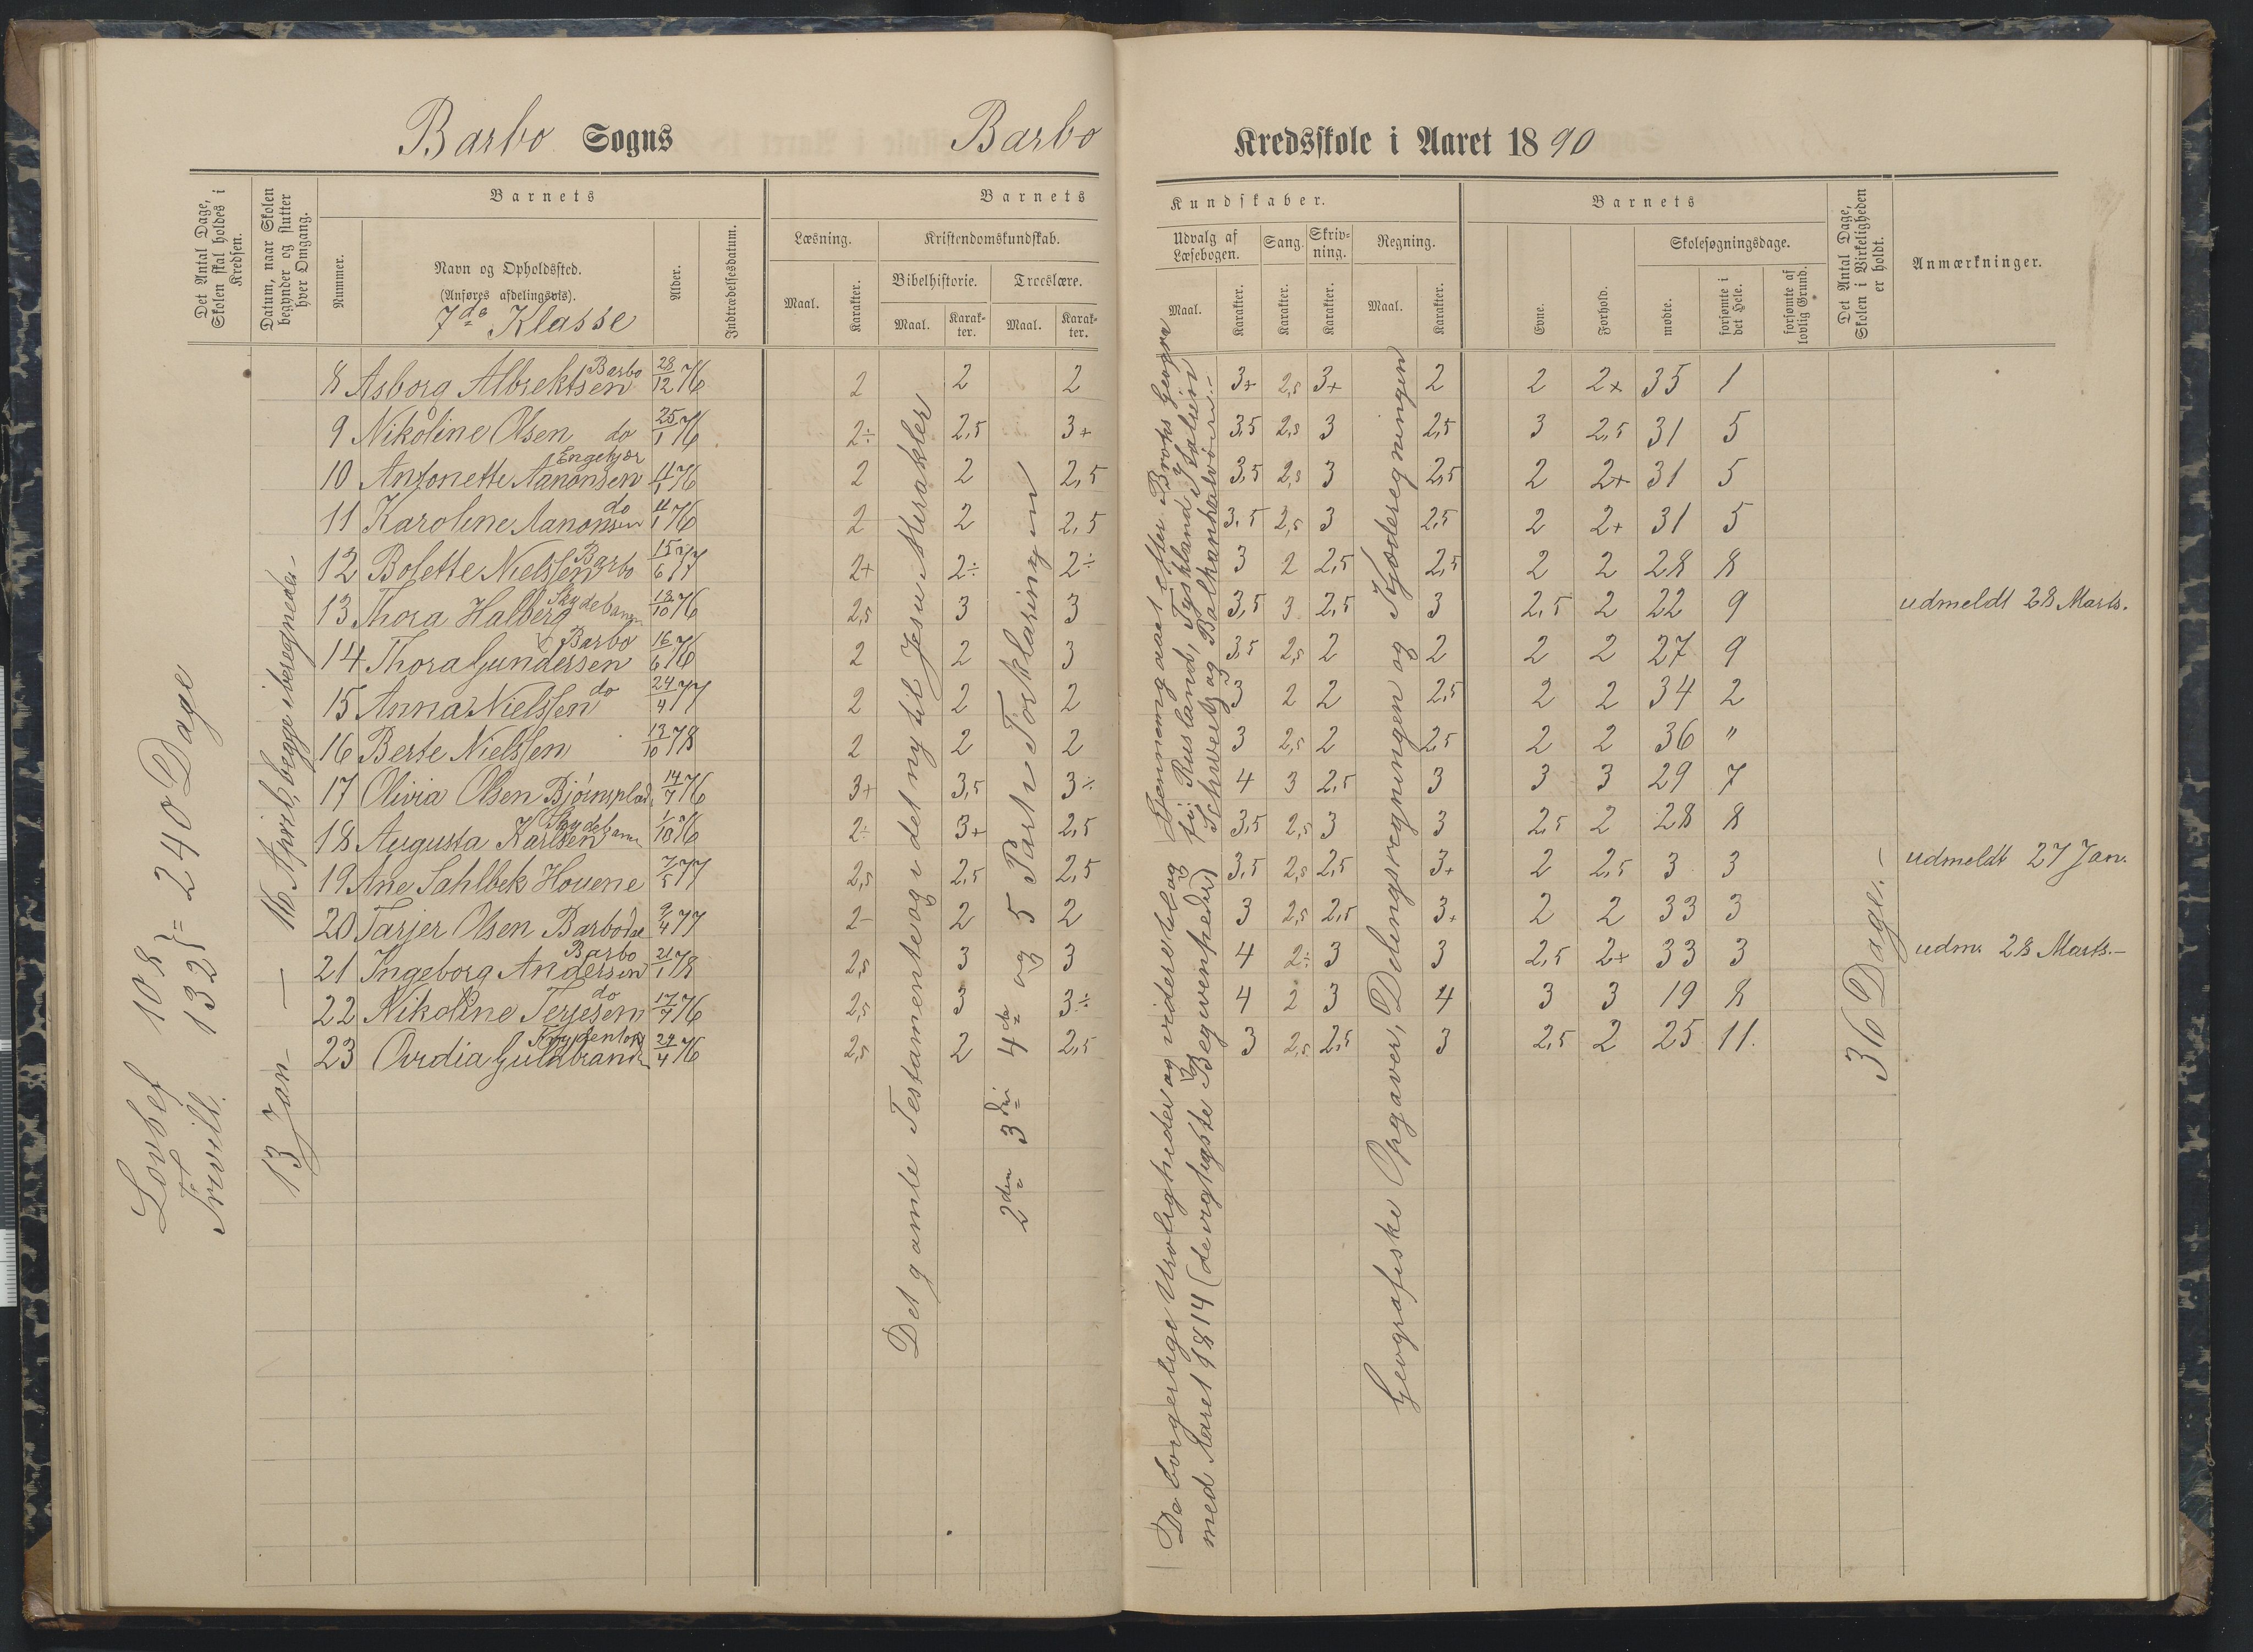 Barbo Sogns Barbo Kredsskole i Aaret 1890
Det Antal Dage, Skolen skal holdes i Kredsen.
Datum, naar Skolen begynder og slutter hver Omgang.
Barnets
Nummer.
Navn og Opholdssted.
(Anføres afdelingsvis).
7de Klasse
Alder.
Indtrædelsesdatum.
Barnets Kundskaber.
Læsning.
Maal.
Karakter.
Kristendomskundskab.
Bibelhistorie.
Maal.
Karakter.
Troeslære.
Maal.
Karakter.
Udvalg af Læsebogen.
Maal.
Karakter.
Sang.
Karakter.
Skrivning.
Karakter.
Regning.
Maal.
Karakter.
Barnets
Evne.
Forhold.
Skolesøgningsdage.
mødte.
forsømte i det Hele.
forsømte af lovlig Grund.
Det Antal Dage, Skolen i Virkeligheden er holdt.
Anmærkninger.
8 Asborg Albrektsen Barbo 28/12 76 2 2 2 3+ 2,5 3+ 2 2 2+ 35 1
9 Nikoline Olsen do 25/1 76 2÷ 2,5 3+ 3,5 2,5 3 2,5 3 2,5 31 5
10 Antonette Aanonsen Engekjær 4/1 76 2 2 2,5 3,5 2,5 3 2,5 2 2+ 31 5
11 Karoline Aanonsen do 4/1 76 2 2 2,5 3,5 2,5 3 2,5 2 2+ 31 5
12 Bolette Nielssen Barbo 15/6 77 2+ 2÷ 2÷ 3 2 2,5 2,5 2 2 28 8
13 Thora Halberg 18/10 76 2,5 3 3 3,5 3 2,5 3 2,5 2 22 9 udmeldt 28 Marts.
14 Thora Gundersen Barbo 16/6 76 2 2 3 3,5 2,5 2 2 2 2 27 9
15 Anna Nielssen do 24/4 77 2 2 2 3 2 2 2,5 2 2 34 2
16 Berte Nielssen 13/10 78 2 2 2 3 2,5 2 2,5 2 2 36 "
17 Olivia Olsen 14/7 76 3+ 3,5 3÷ 4 3 2,5 3 3 3 29 7
18 Augusta Karlsen 1/10 76 2÷ 3+ 2,5 3,5 2,5 3 3 2,5 2 28 8
19 Ane Sahlbek Houene 7/5 77 2,5 2,5 2,5 3,5 2,5 2,5 3+ 2 2,5 3 3 udmeldt 27 Jan.
20 Tarjer Olsen Barbodal 9/4 77 2- 2 2 3 2,5 2,5 3+ 2 2 33 3
21 Ingeborg Andersen Barbo 21/1 78 2,5 3 3 4 2÷ 3 3 2,5 2+ 33 3 udm. 28 Marts.-
22 Nikoline Terjesen do 17/7 76 2,5 3 3÷ 4 2 3 4 3 3 19 8
23 Ovidia Guldbrands 29/4 76 2,5 2 2,5 3 2,5 2,5 3 2,5 2 25 11.
Lovbef 108
Frivill. 132 } = 240 Dage
13 Jan - 16 April, begge iberegnede.-
Det gamle Testamente og i det ny til Jesu Mirakler
2den 3die 4de og 5 Part i Forklaringen
De borgerlige Uroligheder og videre til og
med Aaret 1814 (de vigtigste Begivenheder)
Gjennemgaaet efter Broks Geografi: Rusland, Tyskland, Italien, Schweitz og Balkanhalvøen.-
Geografiske Opgaver, Delingsregningen og Kjæderegningen
36 Dage.-